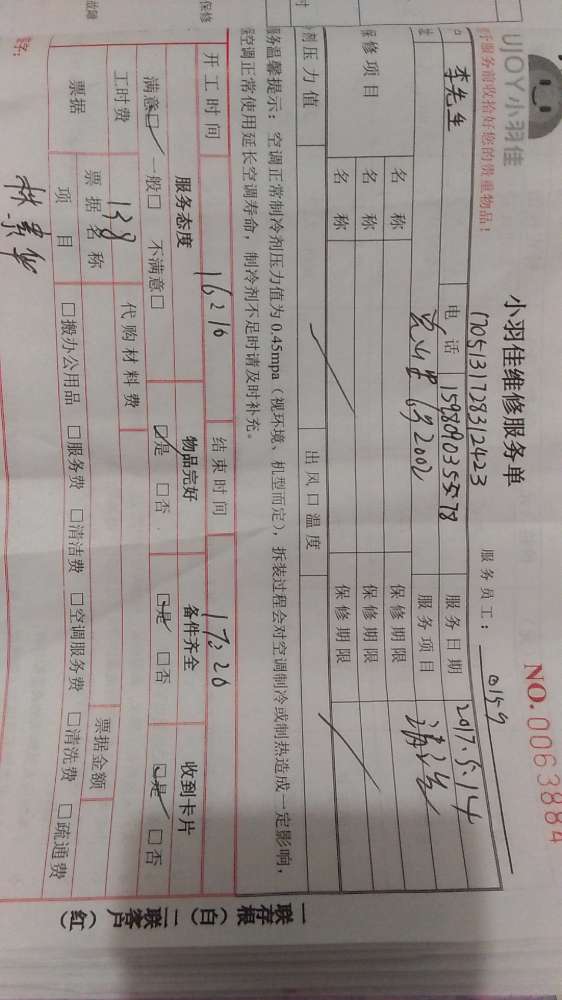 UJOY小羽佳
小羽佳维修服务单
NO. 0063884
服务前收拾好您的贵重物品!
1705131728312423
服务员工: 0159
李先生 电话 服务日期 2017.5.14
服务项目 清洗
修项目 名称 保修期限
名称 保修期限
名称 保修期限
压力值 出风口温度
服务温馨提示:空调正常制冷剂压力值为0.45mpa(视环境、机型而定),拆装过程会对空调制冷或制热造成一定影响,
空调正常使用延长空调寿命,制冷剂不足时请及时补充。
开工时间 16:16 结束时间 17:20
服务态度 物品完好 备件齐全 收到卡片
满意☑ 一般□ 不满意□ ☑是 □否 ☑是 □否 ☑是 □否
工时费 138 代购材料费
票据 票据名称 票据金额
项目 □搬办公用品 □服务费 □清洁费 □空调服务费 □清洗费 □疏通费
一联存根(白) 二联客户(红)
保修
故障